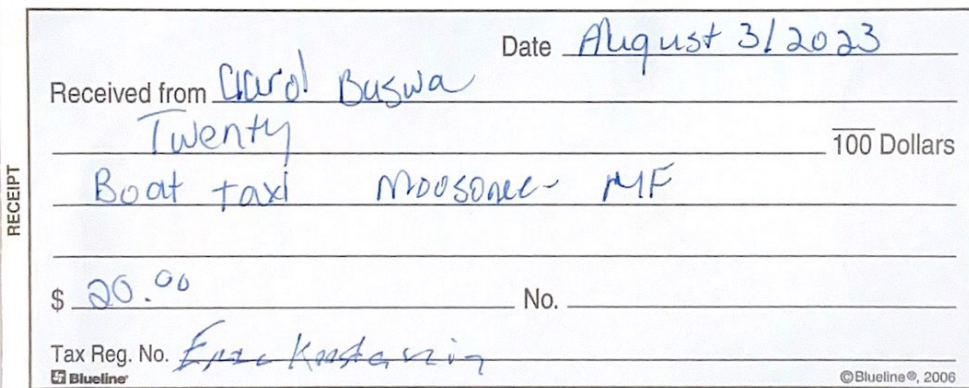 RECEIPT
Date August 3/2023
Received from Carol Buswa
Twenty
100 Dollars
Boat taxi Moosonee - MF
$ 20.00 No.
Tax Reg. No.
Blueline ©Blueline®, 2006